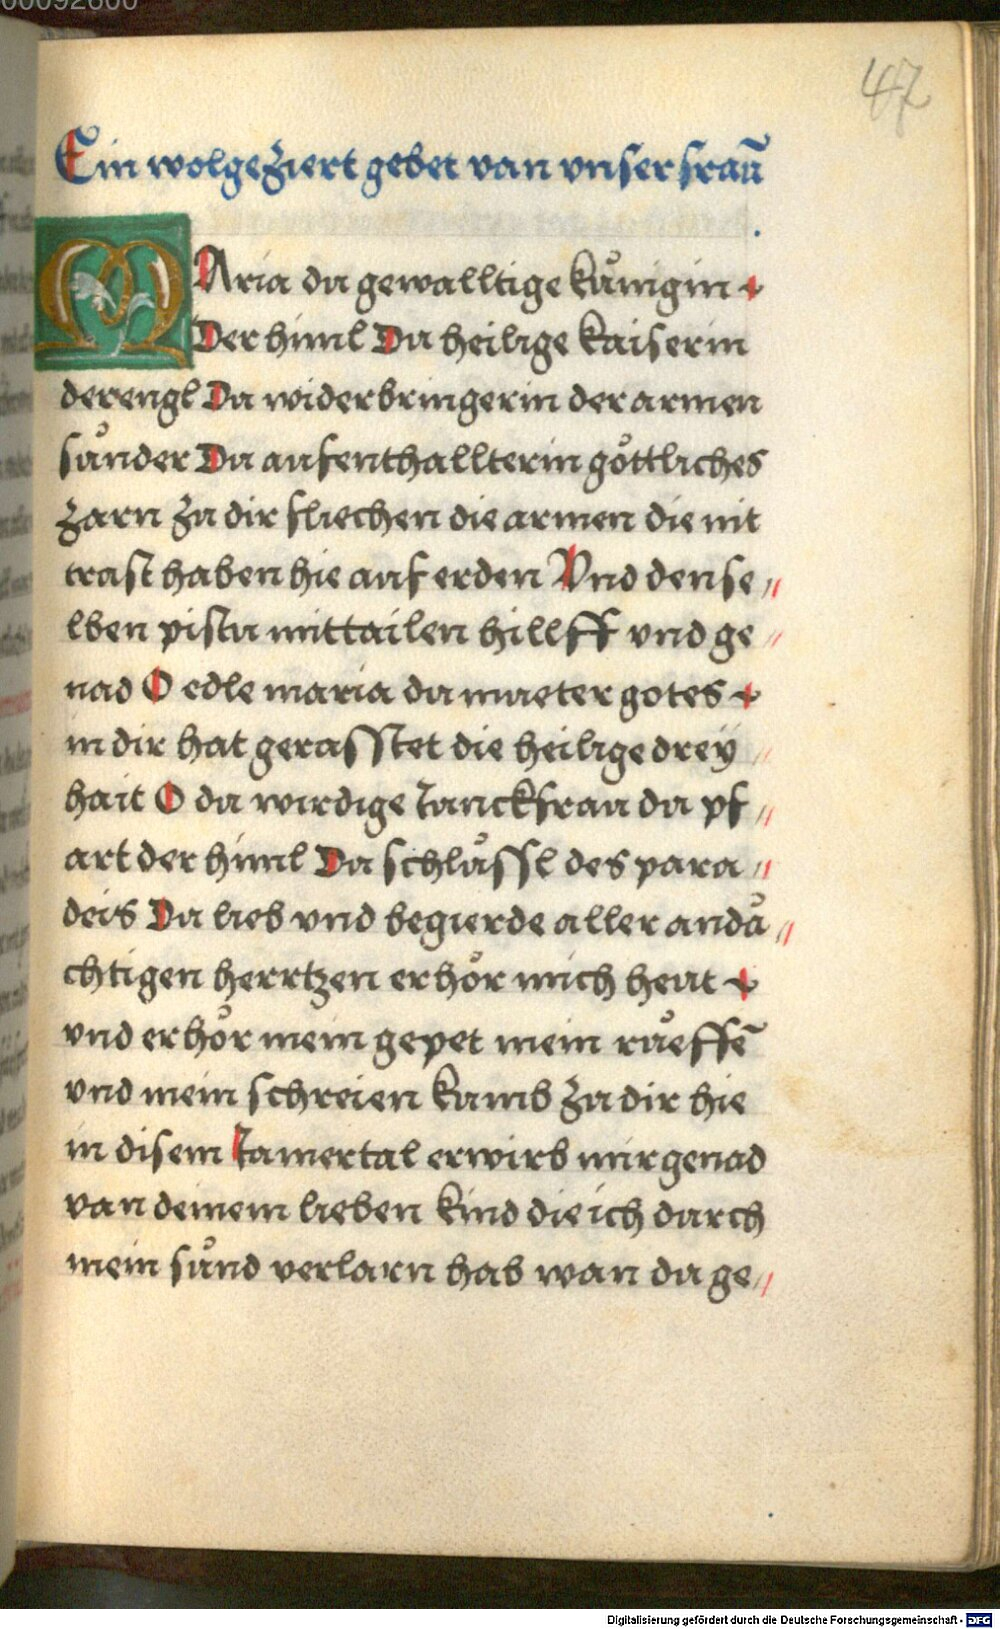 00092600
47
Ein wolgeziert gebet van vnser fraū
MAria du gewalltige kůnigin
Der himl Du heilige kaiserin
der engl Du widerbringerin der armen
sůnder Du aufenthallterin gőttliches
zorn zu dir fliechen die armen die nit
trost haben hie auf erden Vnd dense
lben pistu mittailen hillff vnd ge
nad O edle maria du mueter gotes
in dir hat gerasstet die heilige drey
hait O du wirdige Junckfrau du pf
art der himl Du schlůssl des para
deis Du lieb vnd begierde aller andå
chtigen herrtzen erhőr mich heut
vnd erhőr mein gepet mein růeffē
vnd mein schreien kumb zu dir hie
in disem Jamertal erwirb mir genad
van deinem lieben kind die ich durch
mein sůnd verlorn hab wan du ge
Digitalisierung gefördert durch die Deutsche Forschungsgemeinschaft - DFG